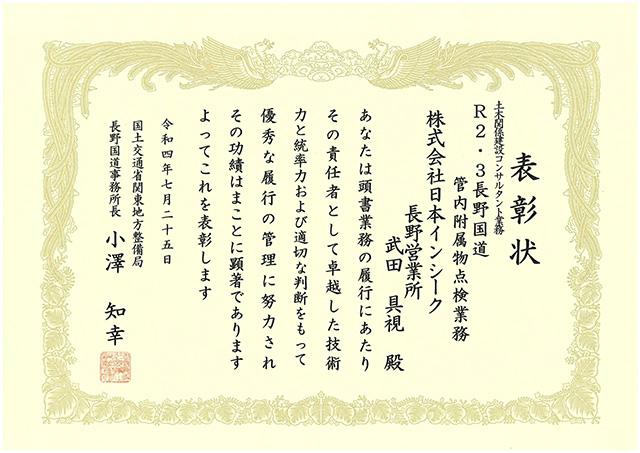 表彰状
土木関係建設コンサルタント業務
R2・3長野国道
管内附属物点検業務
株式会社日本インシーク
長野営業所
武田 具視 殿
あなたは頭書業務の履行にあたり
その責任者として卓越した技術
力と統率力および適切な判断をもって
優秀な履行の管理に努力され
その功績はまことに顕著であります
よってこれを表彰します
令和四年七月二十五日
国土交通省関東地方整備局
長野国道事務所長 小澤 知幸